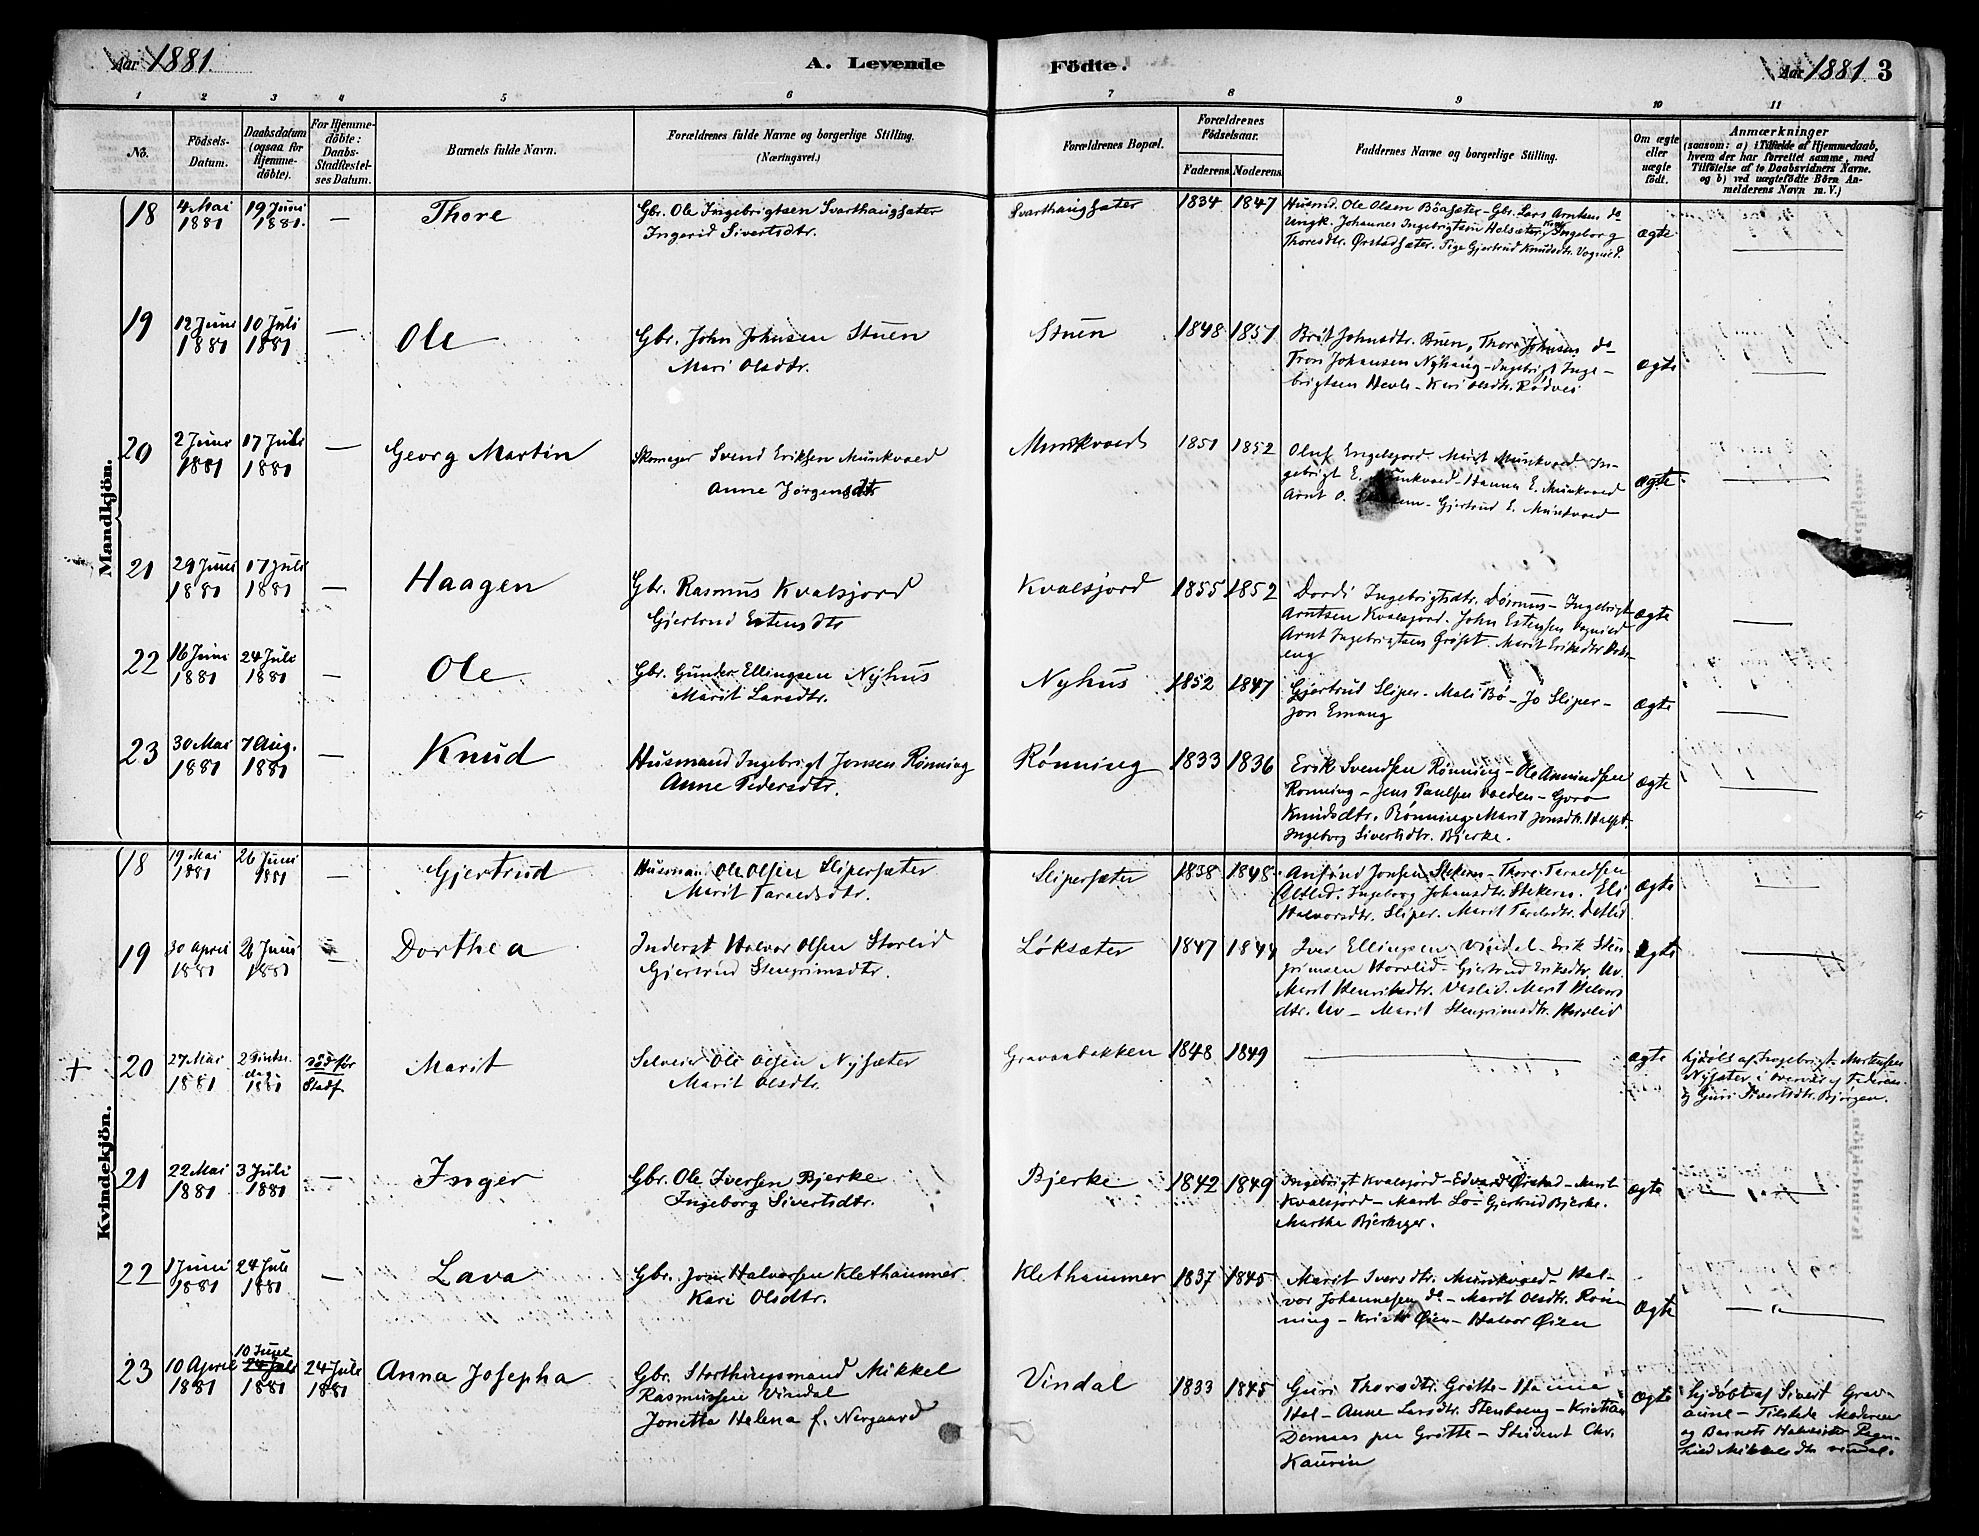 Aar 1881.
A. Levende Födte.
Aar 1881 3
1 2 3 4 5 6 7 8 9 10 11
No. Födsels-Datum. Daabsdatum (ogsaa for Hjemme-döbte). For Hjemme-döbte: Daabs-Stadfæstel-ses Datum. Barnets fulde Navn. Forældrenes fulde Navne og borgerlige Stilling. (Næringsvei.)
Forældrenes Bopæl. Forældrenes Födselsaar. Faderens Moderens. Faddernes Navne og borgerlige Stilling. Om ægte eller uægte födt.
Anmærkninger
(saasom: a) i Tilfælde af Hjemmedaab,
hvem der har forrettet samme, med
Tilföielse af to Daabsvidners Navne.
og b) ved uægtefödte Börn An-
melderens Navn m. V.)
Mandkjön.
18 4 Mai 1881 19 Juni 1881. — Thore
Gbr. Ole Ingebrigtsen Svarthaugsæter
Ingerid Sivertsdtr.
Svarthaugsæter 1834 1847
Husmd. Ole Olsen Böasæter - Gbr. Lars Arntsen do
Ungk. Johannes Ingebrigtsen Halsæter Kone Ingeborg
Thoresdtr. Ørstadsæter. Pige Gjertrud Knudsdtr. Vognild.
ægte —
19 12 Juni 1881 10 Juli 1881 — Ole
Gbr. John Johnsen Stuen
Mari Olsdtr.
Stuen 1848 1851
Brit Johnsdtr. Buen, Thore Johnsen do
Tron Johansen Nyhaug - Ingebrigt Inge-
brigtsen Hevle - Kari Olsdtr. Rødvei
ægte —
20 2 Juni 1881 17 Juli 1881 — Georg Martin
Skomager Svend Eriksen Munkvoed
Anne Jørgensdtr
Munkvoed 1851 1852
Oluf Engelsjord. Marit Munkvoed. In-
gebrigt E. Munkvoed - Hanna E. Munkvoed
Arnt O. - Gjertrud E. Munkvoed
ægte —
21 29 Juni 1881 17 Juli 1881 — Haagen
Gbr. Rasmus Kvalsjord
Gjertrud Estensdtr
Kvalsjord 1855 1852
Dordi Ingebrigtsdtr. Dørrum - Ingebrigt
Arntsen Kvalsjord. John Estensen Vognild
Arnt Ingebrigtsen Grøset. Marit Eriksdtr
eng
ægte —
22 16 Juni 1881 24 Juli 1881 — Ole
Gbr. Gunder Ellingsen Nyhus
Marit Larsdtr.
Nyhus 1852 1847
Gjertrud Sliper - Mali Bö - Jo Sliper -
Jon Emaug
ægte —
23 30 Mai 1881 7 Aug. 1881 — Knud
Husmand Ingebrigt Jonsen Rønning
Anne Pedersdtr.
Rønning 1833 1836
Erik Svendsen Rønning - Ole Amundsen
Rønning - Jens Paulsen Voeden - Guro
Knudsdtr. Rønning. Marit Jonsdtr. Halset.
Ingeborg Sivertsdtr. Bjerke.
ægte —
Kvindekjön.
18 19 Mai 1881 26 Juni 1881 — Gjertrud
Husman Ole Olsen Slipersæter
Marit Taraldsdtr.
Slipersæter 1838 1848
Anfind Jonsen Stekern - Thore Taraldsen
Detlid. Ingeborg Johansdtr. Stekern. Eli
Halvorsdtr. Sliper. Marit Taraldsdtr. Detlid.
ægte —
19 30 April 1881 26 Juni 1881 — Dorthea
Inderst Halvor Olsen Storlid
Gjertrud Stengrimsdtr.
Løksæter 1847 1844
Iver Ellingsen Vindal - Erik Sten-
grimsen Horvlid - Gjertrud Eriksdtr. Uv.
Marit Henriksdtr. Veslid. Marit Halvors
dtr. Uv - Marit Stengrimsdtr. Horvlid
ægte —
+ 20 27 Mar 1881 2 Pintse-dag 1881 død før Stadf Marit
Selveier Ole Olsen Nysæter
Marit Olsdtr.
Gravaabakken 1848 1849 — ægte
hjdøbt af Ingebrigt Mortensen
Nysæter i Overvær af Faderen
og Guri Sivertsdtr. Bjørgen.
21 22 Mai 1881 3 Juli 1881 — Inger
Gbr. Ole Iversen Bjerke
Ingeborg Sivertsdtr.
Bjerke 1842 1849
Ingebrigt Kvalsjord - Edvard Ørstad - Marit
Kvalsjord - Marit Lo - Gjertrud Bjerke.
Marthe Bjerkager.
ægte —
22 1 Juni 1881 24 Juli 1881 — Lava
Gbr. Jon Halvorsen Klethammer
Kari Olsdtr.
Klethammer 1837 1845
Marit Iversdtr. Munkvoed - Hal-
vor Johannesen do - Marit Olsdtr. Røn-
ning - Kristi Øien - Halvor Øien
ægte — " —
23 10 April 1881 10 Juni 24 Juli 1881 24 Juli 1881 Anna Josepha
Gbr. Storthingsmand Mikkel
Rasmussen Vindal
Jonetta Helena f. Nergaard
Vindal 1833 1845
Guri Thorsdtr. Gritte - Hanna
Hol - Anne Larsdtr. Stenboeng - Kristian
Gritte - Student Chr.
Kaurin
ægte
hjdøbt af Sivert Grav-
aune - Tilstede Moderen
og Barnets Halvsøster Ragn-
hild Mikkelsdtr Vindal.